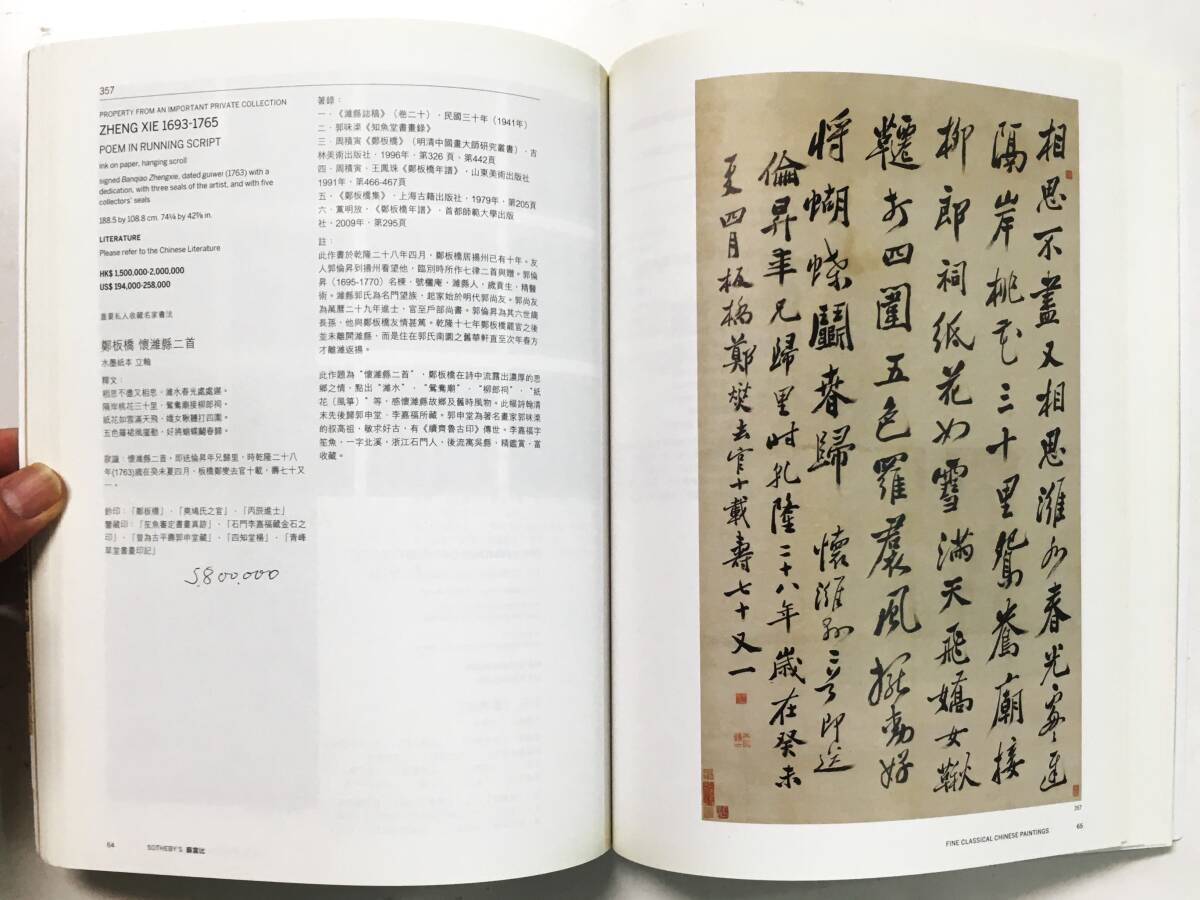 357
PROPERTY FROM AN IMPORTANT PRIVATE COLLECTION
ZHENG XIE 1693-1765
POEM IN RUNNING SCRIPT
ink on paper, hanging scroll
signed Banqiao Zhengxie, dated guiwei (1763) with a
dedication, with three seals of the artist, and with five
collectors' seals
188.5 by 108.8 cm. 74¼ by 42⅞ in.
LITERATURE
Please refer to the Chinese Literature
HK$ 1,500,000-2,000,000
US$ 194,000-258,000
重要私人收藏名家書法
鄭板橋 懷濰縣二首
水墨紙本 立軸
釋文：
相思不盡又相思，濰水春光處處遲。
隔岸桃花三十里，鴛鴦廟接柳郎祠。
紙花如雪滿天飛，嬌女鞦韆打四圍。
五色羅裙風擺動，好將蝴蝶鬬春歸。
款識：懷濰縣二首，即送倫昇年兄歸里，時乾隆二十八
年(1763)歲在癸未夏四月，板橋鄭燮去官十載，壽七十又
一。
鈐印：「鄭板橋」、「爽鳩氏之官」、「丙辰進士」
鑒藏印：「笙魚審定書畫真跡」、「石門李嘉福藏金石之
印」、「曾為古平壽郭申堂藏」、「四知堂楊」、「青峰
草堂書畫印記」
5,800,000
著錄：
一．《濰縣誌稿》（卷二十），民國三十年（1941年）
二．郭味蕖《知魚堂書畫錄》
三．周積寅《鄭板橋》（明清中國畫大師研究叢書），吉
林美術出版社，1996年，第326 頁、第442頁
四．周積寅，王鳳珠《鄭板橋年譜》，山東美術出版社
1991年，第466-467頁
五．《鄭板橋集》，上海古籍出版社，1979年，第205頁
六．黨明放，《鄭板橋年譜》，首都師範大學出版
社，2009年，第295頁
註：
此作書於乾隆二十八年四月，鄭板橋居揚州已有十年。友
人郭倫昇到揚州看望他，臨別時所作七律二首與贈。郭倫
昇(1695-1770) 名樑，號欐庵，濰縣人，歲貢生，精醫
術。濰縣郭氏為名門望族，起家始於明代郭尚友。郭尚友
為萬曆二十九年進士，官至戶部尚書。郭倫昇為其六世歲
長孫，他與鄭板橋友情甚篤。乾隆十七年鄭板橋罷官之後
並未離開濰縣，而是住在郭氏南園之舊華軒直至次年春方
才離濰返揚。
此作題為“懷濰縣二首”，鄭板橋在詩中流露出濃厚的思
鄉之情，點出“濰水”、“鴛鴦廟”、“柳郎祠”、“紙
花（風箏）”等，感懷濰縣故鄉及舊時風物。此幅詩翰清
末先後歸郭申堂、李嘉福所藏。郭申堂為著名畫家郭味蕖
的叔高祖，敏求好古，有《續齊魯古印》傳世。李嘉福字
笙魚，一字北溪，浙江石門人，後流寓吳縣，精鑑賞，富
收藏。
64
SOTHEBY'S 蘇富比
相思不盡又相思濰水春光處處遲
隔岸桃花三十里鴛鴦廟接
柳郎祠紙花如雪滿天飛嬌女鞦
韆打四圍五色羅裙風擺動好
將蝴蝶鬬春歸 懷濰縣二首即送
倫昇年兄歸里時乾隆二十八年歲在癸未
夏四月板橋鄭燮去官十載壽七十又一
357
FINE CLASSICAL CHINESE PAINTINGS
65